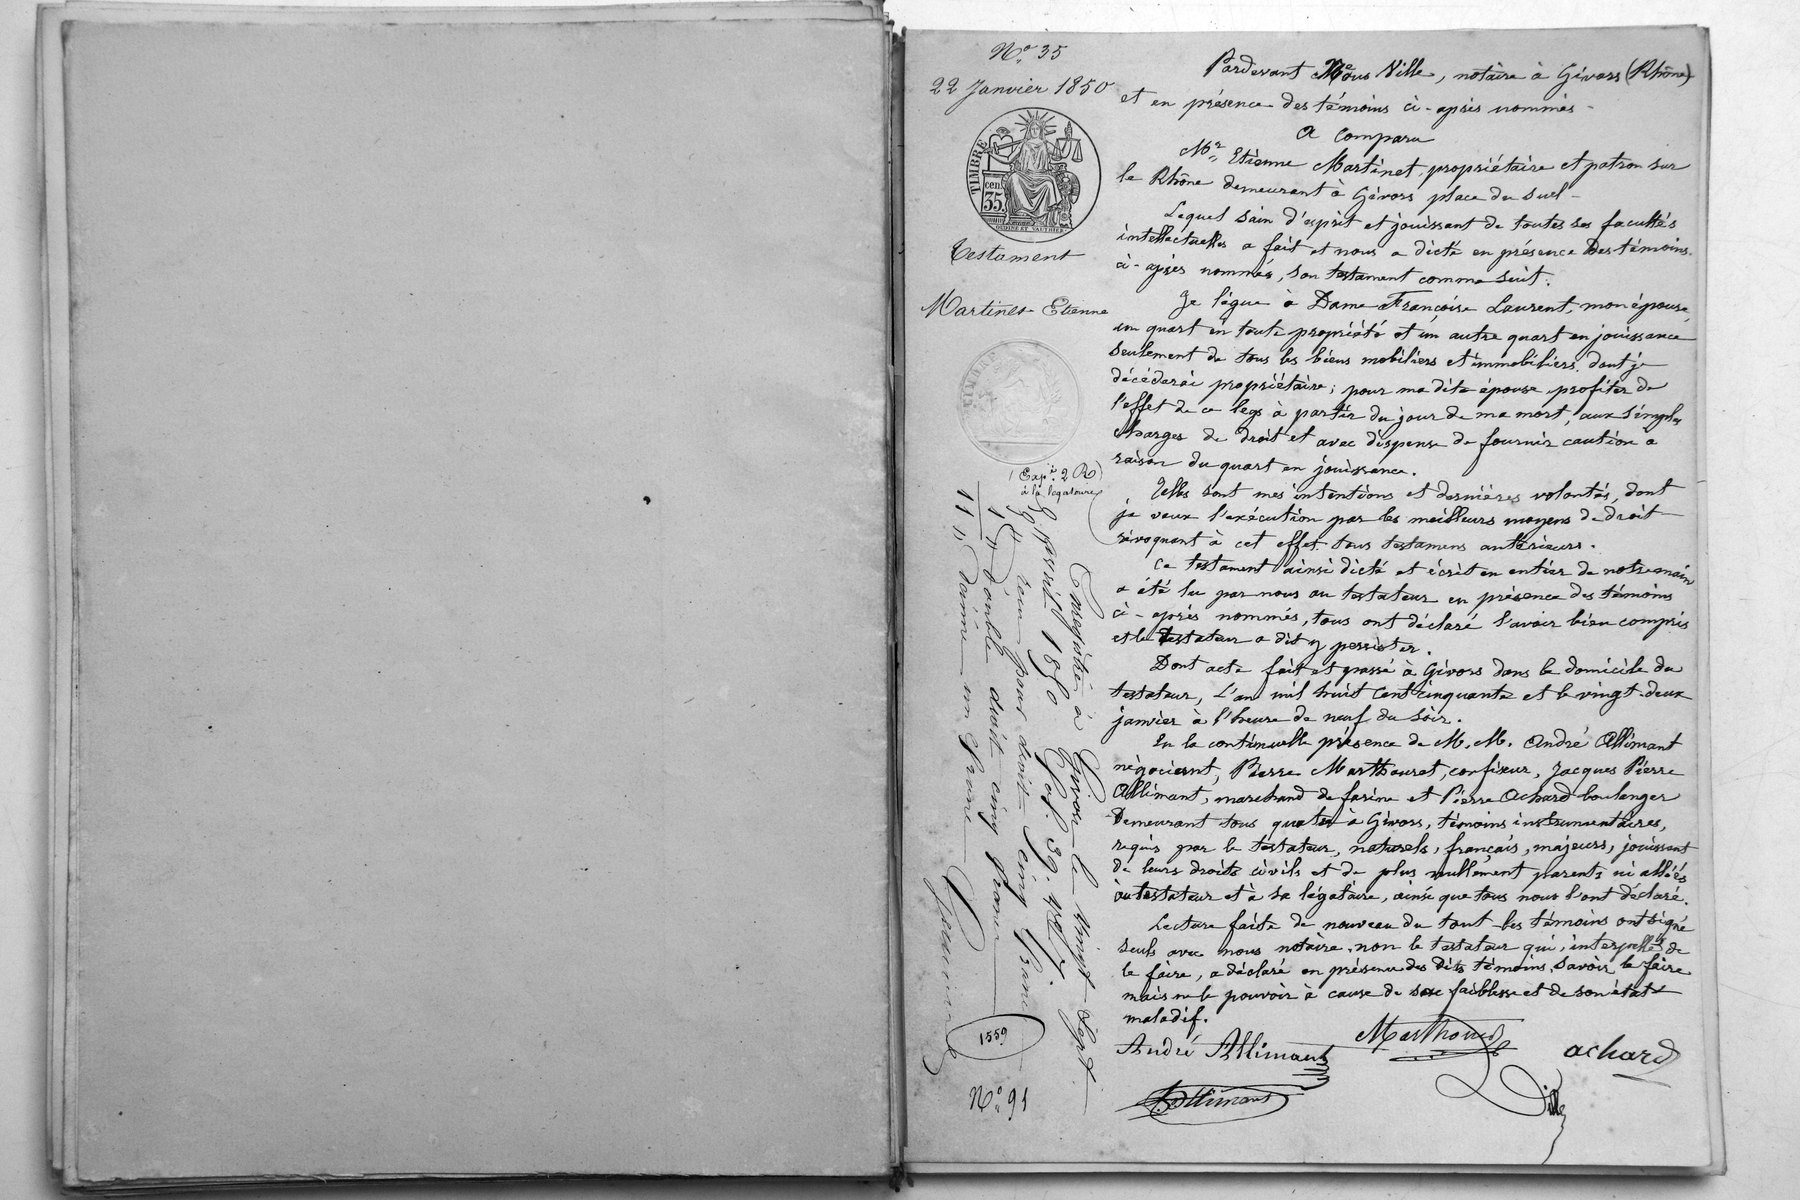 N.° 35
22 Janvier 1850
TIMBRE
cen.
35.
OUDINE ET VAUTHIER
Testament
Martinet Etienne
TIMBRE
(Exp.n 2 R)
à la légataire
Pardevant Me Ville, notaire à Givors (Rhône)
et en présence des témoins ci-après nommés
A Comparu
Mr Etienne Martinet, propriétaire et patron sur
le Rhône demeurant à Givors place du Suel
Lequel sain d'esprit et jouissant de toutes ses facultés
intellectuelles a fait et nous a dicté en présence des témoins
ci-après nommés, son testament comme suit.
Je lègue à Dame Françoise Laurent, mon épouse,
un quart en toute propriété et un autre quart en jouissance
seulement de tous les biens mobiliers et immobiliers, dont je
décéderai propriétaire; pour ma dite épouse profiter de
l'effet de ce legs à partir du jour de ma mort, aux simples
charges de droit et avec dispense de fournir caution a
raison du quart en jouissance.
Telles sont mes intentions et dernières volontés, dont
je veux l'exécution par les meilleurs moyens de droit
révoquant à cet effet tous testamens antérieurs.
Ce testament ainsi dicté et écrit en entier de notre main
a été lu par nous au testateur en présence des témoins
ci-après nommés, tous ont déclaré l'avoir bien compris
et le testateur a dit y persister.
Dont acte fait et passé à Givors dans le domicile du
testateur, L'an mil huit cent cinquante et le vingt-deux
janvier à l'heure de neuf du soir.
En la continuelle présence de M.M. André Allimant
négociant, Pierre Marthouret, confiseur, Jacques Pierre
Allimant, marchand de farine et Pierre Achard boulanger
Demeurant tous quatre à Givors, témoins instrumentaires,
requis par le testateur, naturels, français, majeurs, jouissant
de leurs droits civils et de plus nullement parents ni alliés
au testateur et à sa légataire, ainsi que tous nous l'ont déclaré.
Lecture faite de nouveau du tout les témoins ont signé
seuls avec nous notaire, non le testateur qui, interpellé de
le faire, a déclaré en présence des dits témoins savoir le faire
mais ne le pouvoir à cause de sa faiblesse et de son état
maladif.
André Allimant
Marthouret
achard
Allimant
Ville
Enregistré à Givors le vingt-sept
avril 1850 fol. 39. v.
reçu pour droit cinq francs
double droit cinq francs
dixième un franc
1559
N.° 91